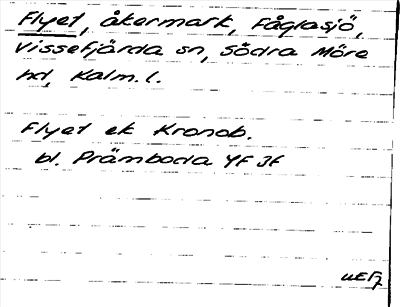 Flyet, åkermark, Fåglasjö,
Vissefjärda sn, Södra Möre
hd, Kalm. l.
Flyet ek Kronob.
bl. Prämboda YF JF